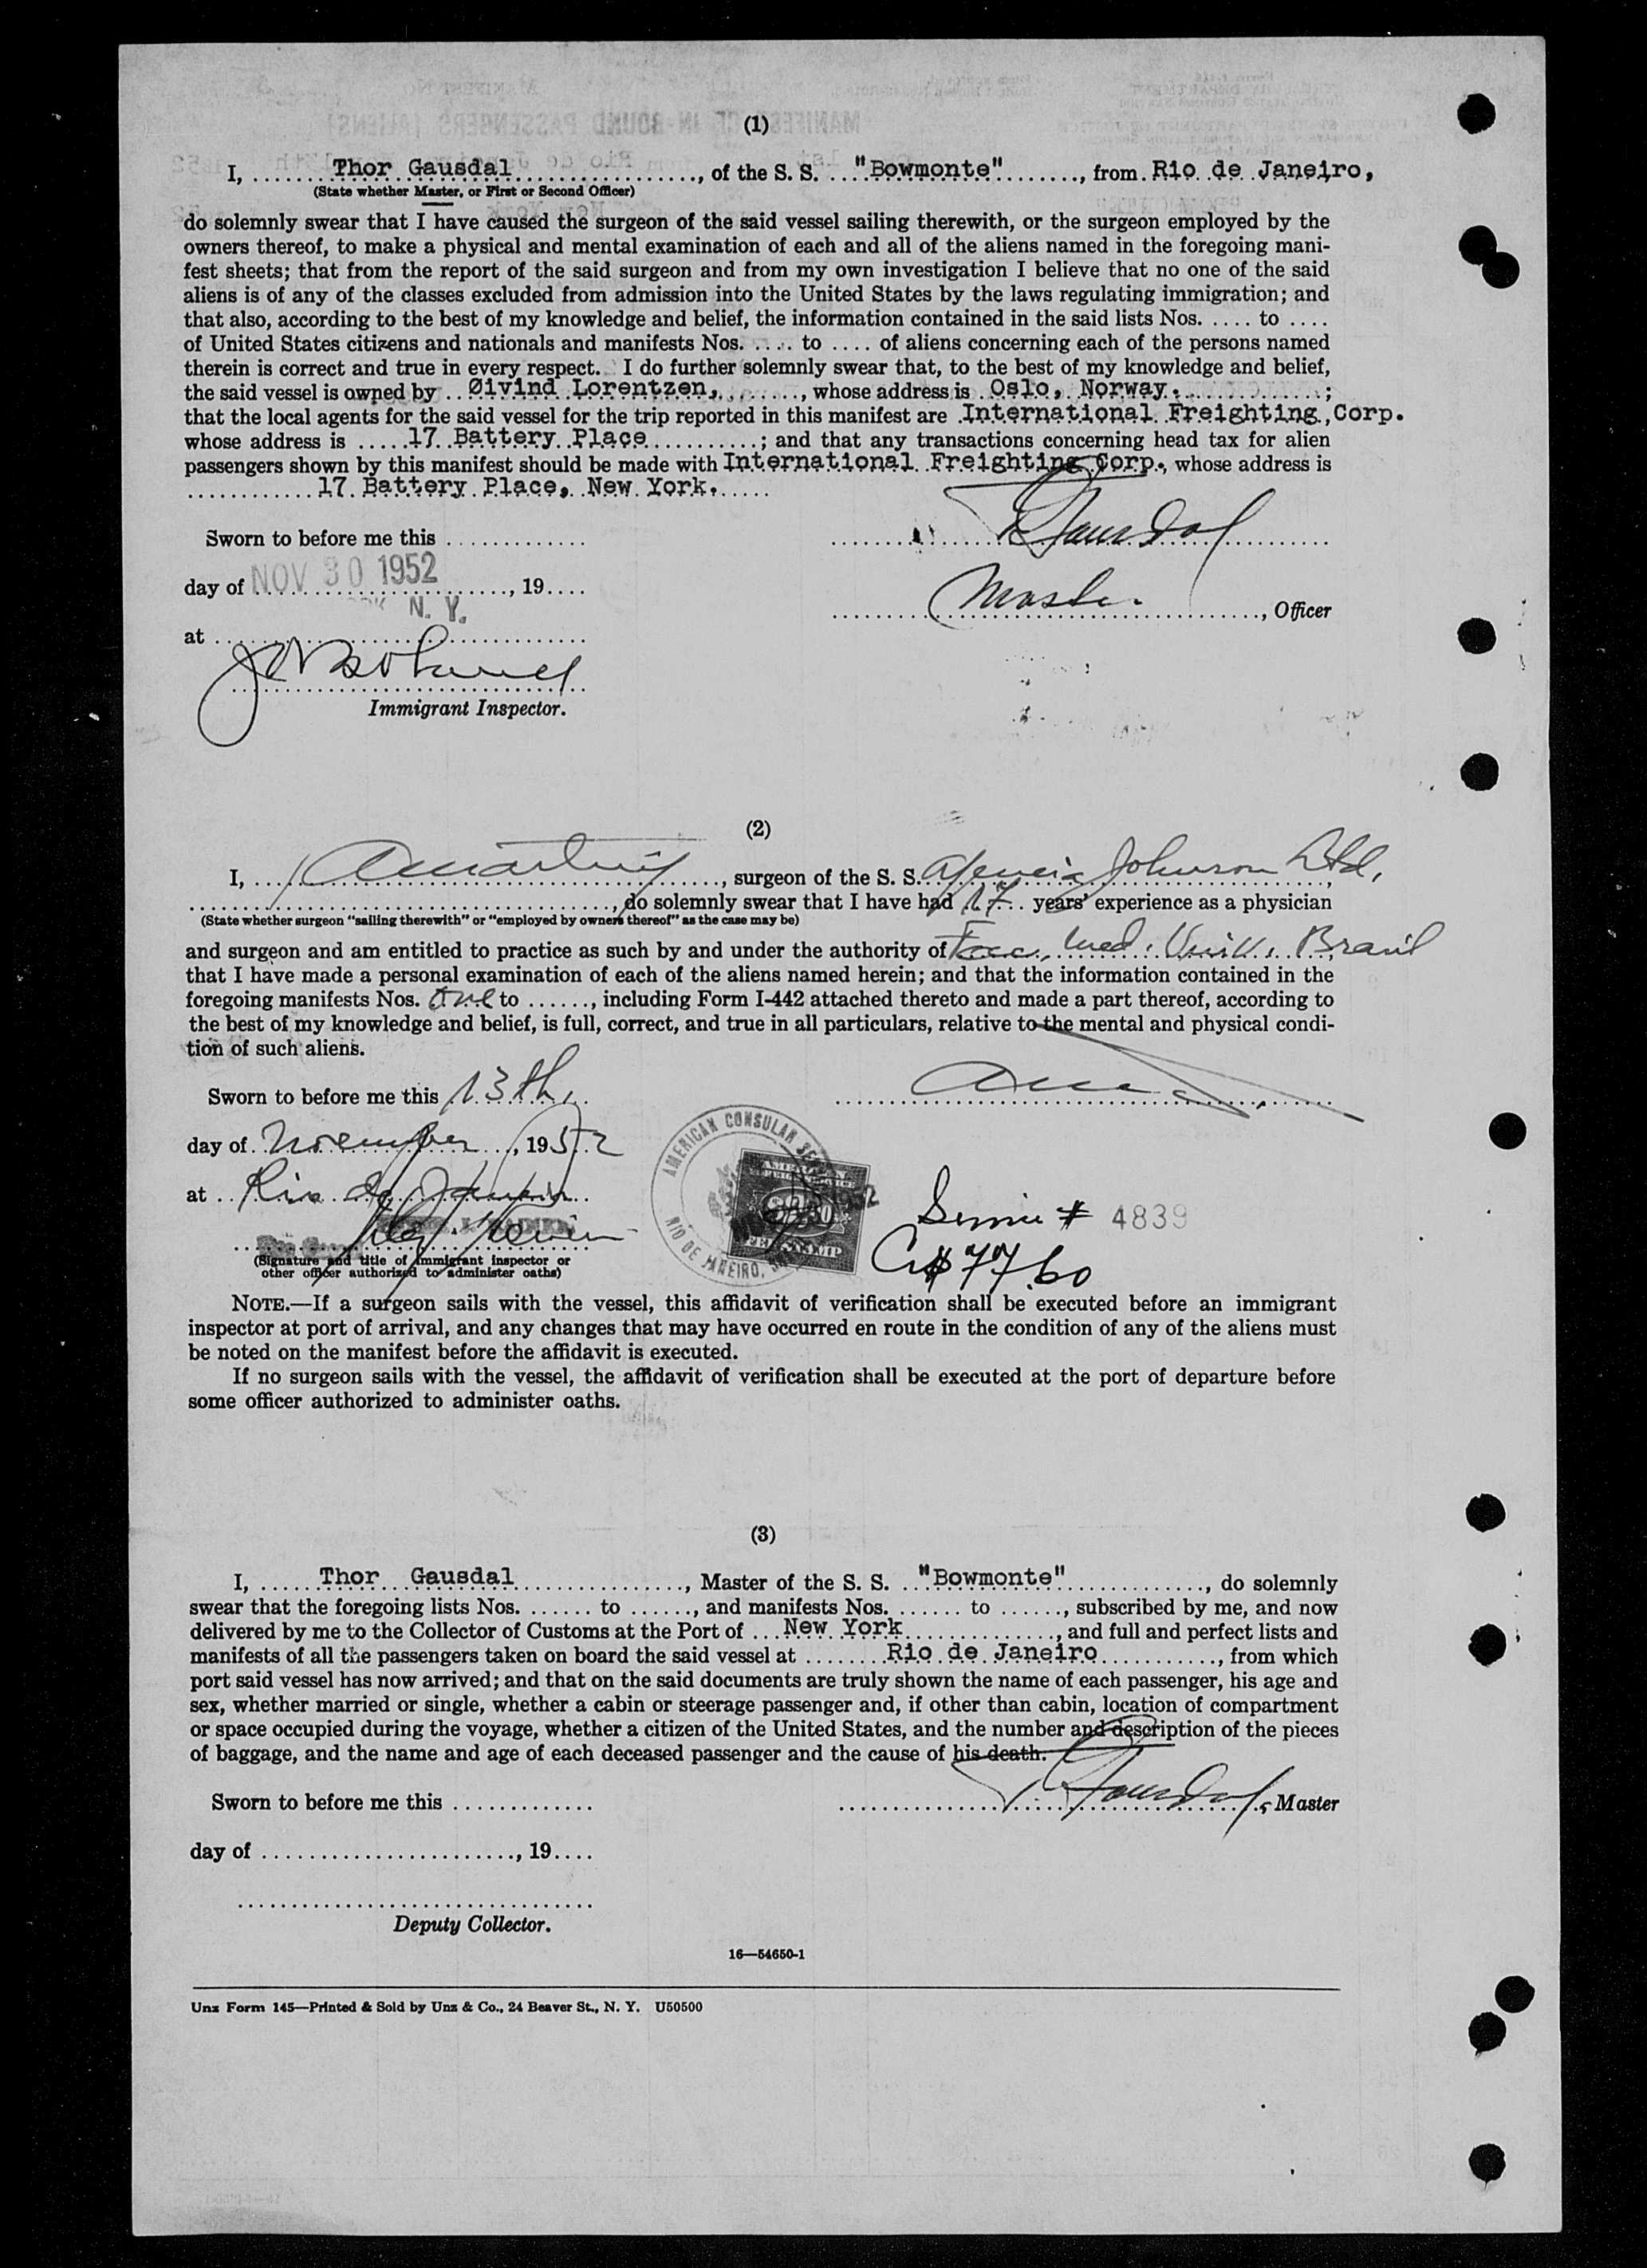 (1)
I, ......Thor Gausdal......, of the S. S. ...."Bowmonte"......., from Rio de Janeiro,
(State whether Master, or First or Second Officer)
do solemnly swear that I have caused the surgeon of the said vessel sailing therewith, or the surgeon employed by the
owners thereof, to make a physical and mental examination of each and all of the aliens named in the foregoing mani-
fest sheets; that from the report of the said surgeon and from my own investigation I believe that no one of the said
aliens is of any of the classes excluded from admission into the United States by the laws regulating immigration; and
that also, according to the best of my knowledge and belief, the information contained in the said lists Nos. .... to ....
of United States citizens and nationals and manifests Nos. .... to .... of aliens concerning each of the persons named
therein is correct and true in every respect. I do further solemnly swear that, to the best of my knowledge and belief,
the said vessel is owned by ..Øivind Lorentzen,......., whose address is ..Oslo, Norway.............;
that the local agents for the said vessel for the trip reported in this manifest are .International Freighting Corp.
whose address is .....17 Battery Place...........; and that any transactions concerning head tax for alien
passengers shown by this manifest should be made with International Freighting Corp., whose address is
............17 Battery Place, New York......
Sworn to before me this .............
day of NOV 30 1952, 19....
N. Y.
at ..............................
Gausdal
Master, Officer
Immigrant Inspector.
(2)
I, ............, surgeon of the S. S. Agencia Johnson Ltd.
..................................., do solemnly swear that I have had 17 years' experience as a physician
(State whether surgeon "sailing therewith" or "employed by owners thereof" as the case may be)
and surgeon and am entitled to practice as such by and under the authority of Fac. Med. Univ. Brasil
that I have made a personal examination of each of the aliens named herein; and that the information contained in the
foregoing manifests Nos. One to ......, including Form I-442 attached thereto and made a part thereof, according to
the best of my knowledge and belief, is full, correct, and true in all particulars, relative to the mental and physical condi-
tion of such aliens.
Sworn to before me this 13th,
day of November, 1952
at ..Rio de Janeiro
AMERICAN CONSULAR SE
RIO DE JANEIRO,
AMERICAN
FEE STAMP
Service # 4839
Cr$ 77.60
(Signature and title of immigrant inspector or
other officer authorized to administer oaths)
NOTE.—If a surgeon sails with the vessel, this affidavit of verification shall be executed before an immigrant
inspector at port of arrival, and any changes that may have occurred en route in the condition of any of the aliens must
be noted on the manifest before the affidavit is executed.
If no surgeon sails with the vessel, the affidavit of verification shall be executed at the port of departure before
some officer authorized to administer oaths.
(3)
I, ......Thor Gausdal................, Master of the S. S. .."Bowmonte"............., do solemnly
swear that the foregoing lists Nos. ...... to ......, and manifests Nos. ....... to ......, subscribed by me, and now
delivered by me to the Collector of Customs at the Port of ...New York..............., and full and perfect lists and
manifests of all the passengers taken on board the said vessel at ........Rio de Janeiro..........., from which
port said vessel has now arrived; and that on the said documents are truly shown the name of each passenger, his age and
sex, whether married or single, whether a cabin or steerage passenger and, if other than cabin, location of compartment
or space occupied during the voyage, whether a citizen of the United States, and the number and description of the pieces
of baggage, and the name and age of each deceased passenger and the cause of his death.
Sworn to before me this .............
T. Gausdal, Master
day of ......................, 19....
Deputy Collector.
16—54650-1
Unz Form 145—Printed & Sold by Unz & Co., 24 Beaver St., N. Y. U50500